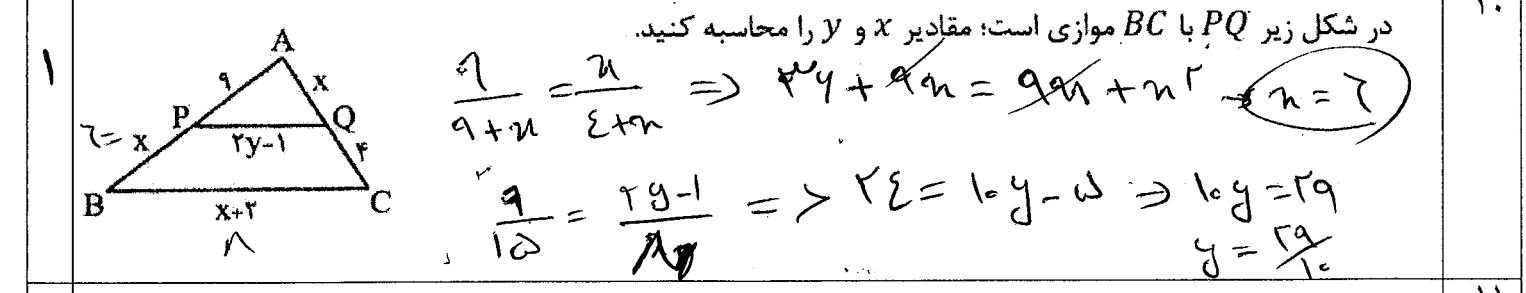 ۱۰
در شکل زیر PQ با BC موازی است؛ مقادیر x و y را محاسبه کنید.
۱
A
۹ x
P Q
۶= x ۲y-۱ ۴
B C
x+۲
۸
۹/۹+x = x/۴+x => ۳۶ + ۹x = ۹x + x² → x = ۶
۹/۱۵ = ۲y-۱/۸ => ۲۴ = ۱۰y - ۵ => ۱۰y = ۲۹
y = ۲۹/۱۰